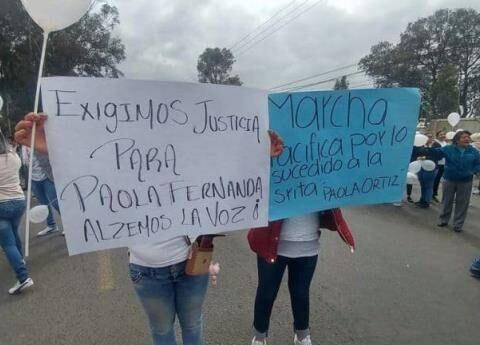 EXIGIMOS JUSTICIA
PARA
PAOLA FERNANDA
ALZEMOS LA VOZ!
Marcha
Pacifica por lo
sucedido a la
srita PAOLA ORTIZ